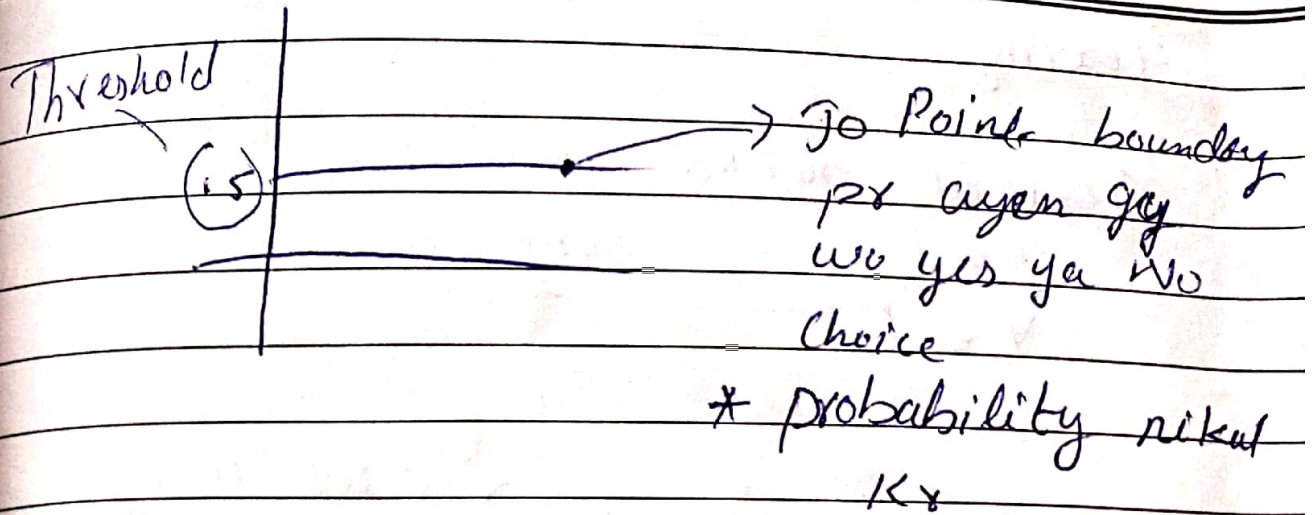 Threshold
.5
Jo Point boundry
pr ayen gy
wo yes ya No
Choice
* probability nikal
Kr